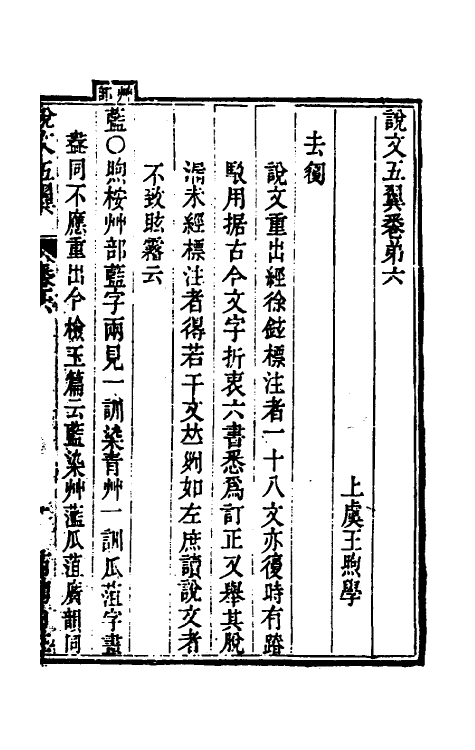 艸部
說文五翼卷弟六
上虞王煦學
去複
說文重出經徐鉉標注者一十八文亦復時有踳
駮用据古今文字折衷六書悉爲訂正又舉其脫
漏未經標注者得若干文竝列如左庶讀說文者
不致眩霿云
藍〇煦桉艸部藍字兩見一訓染青艸一訓瓜菹字畫
盡同不應重出今檢玉篇云藍染艸蘫瓜菹廣韻同
說文五翼